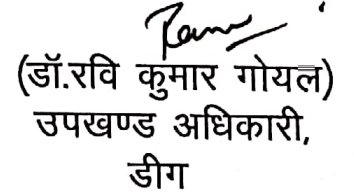 (डॉ.रवि कुमार गोयल)
उपखण्ड अधिकारी,
डीग